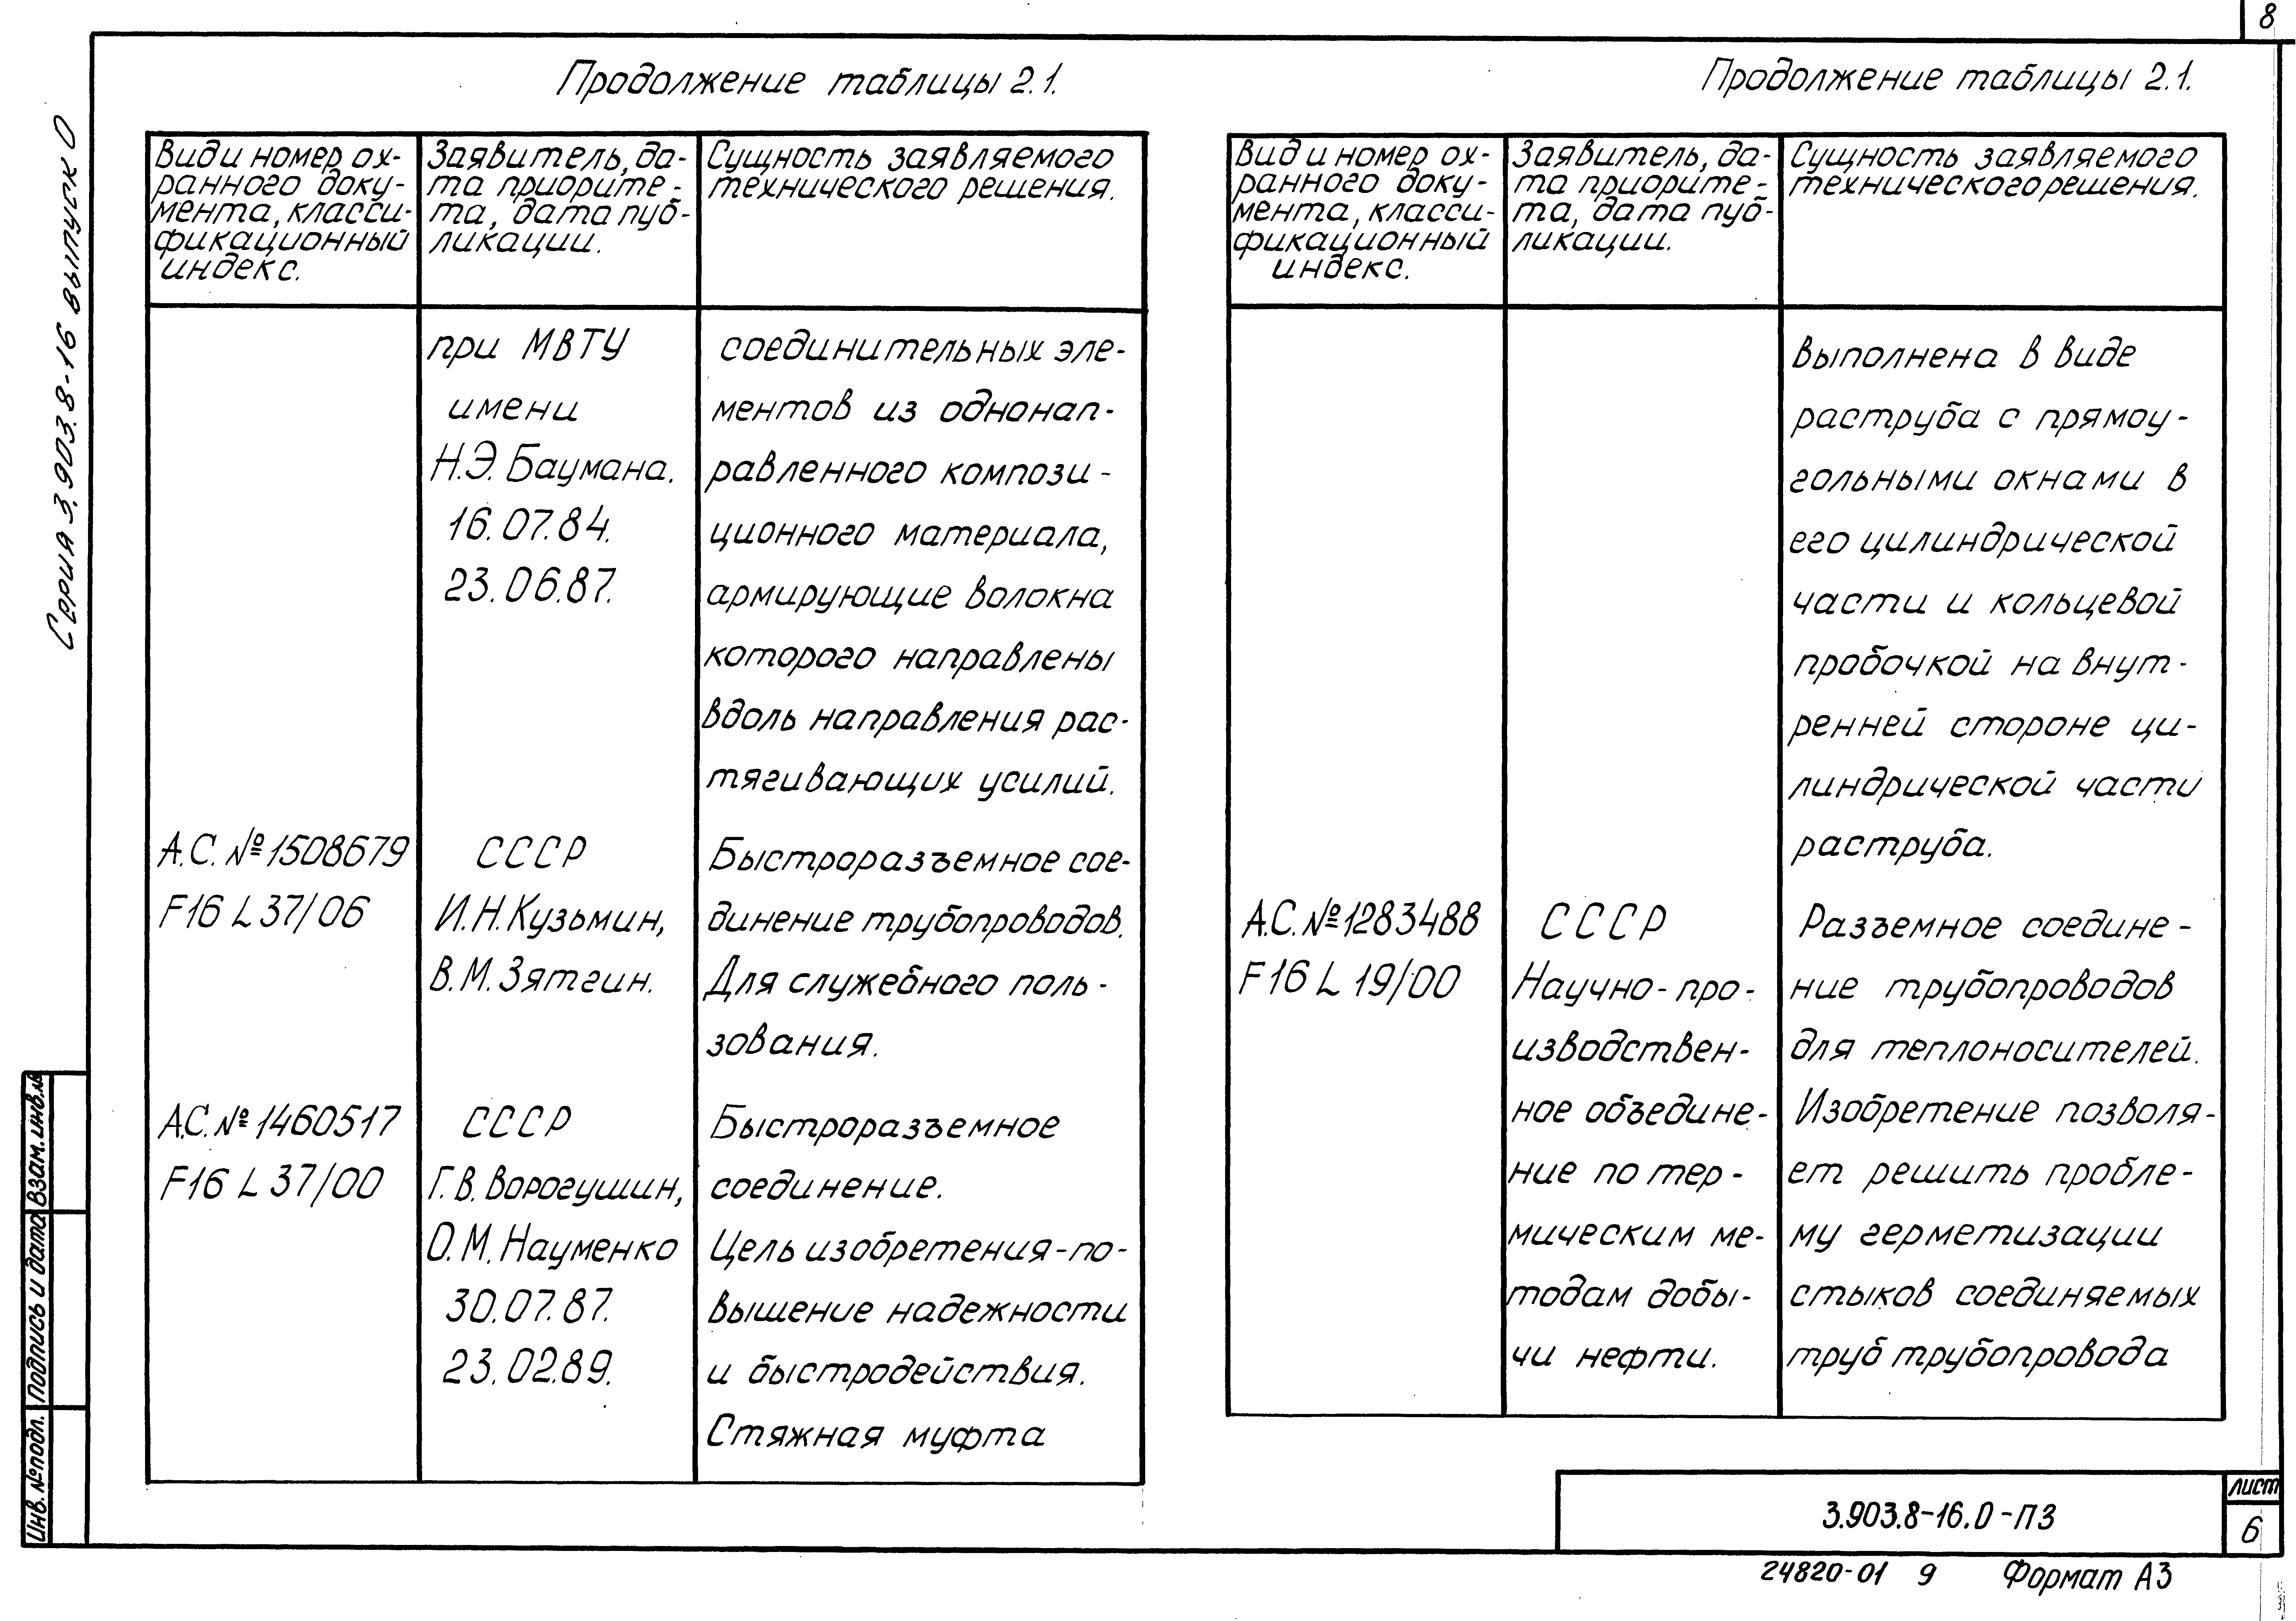 8
Серия 3.903.8-16 выпуск 0
Продолжение таблицы 2.1.
Вид и номер ох-
ранного доку-
мента, класси-
фикационный
индекс.
Заявитель, да-
та приорите-
та, дата пуб-
ликации.
Сущность заявляемого
технического решения.
при МВТУ
имени
Н.Э. Баумана.
16.07.84.
23.06.87.
соединительных эле-
ментов из однонап-
равленного компози-
ционного материала,
армирующие волокна
которого направлены
вдоль направления рас-
тягивающих усилий.
А.С. №1508679
F16 L 37/06
СССР
И.Н. Кузьмин,
В.М. Зятгин.
Быстроразъемное сое-
динение трубопроводов.
Для служебного поль-
зования.
А.С. №1460517
F16 L 37/00
СССР
Г.В. Ворогушин,
О.М. Науменко
30.07.87.
23.02.89.
Быстроразъемное
соединение.
Цель изобретения-по-
вышение надежности
и быстродействия.
Стяжная муфта
Продолжение таблицы 2.1.
Вид и номер ох-
ранного доку-
мента, класси-
фикационный
индекс.
Заявитель, да-
та приорите-
та, дата пуб-
ликации.
Сущность заявляемого
технического решения.
выполнена в виде
раструба с прямоу-
гольными окнами в
его цилиндрической
части и кольцевой
пробочкой на внут-
ренней стороне ци-
линдрической части
раструба.
А.С. №1283488
F16 L 19/00
СССР
Научно-про-
изводствен-
ное объедине-
ние по тер-
мическим ме-
тодам добы-
чи нефти.
Разъемное соедине-
ние трубопроводов
для теплоносителей.
Изобретение позволя-
ет решить пробле-
му герметизации
стыков соединяемых
труб трубопровода
Инв. № подл.
Подпись и дата
Взам. инв. №
3.903.8-16.0-ПЗ
лист
6
24820-01 9 Формат А3